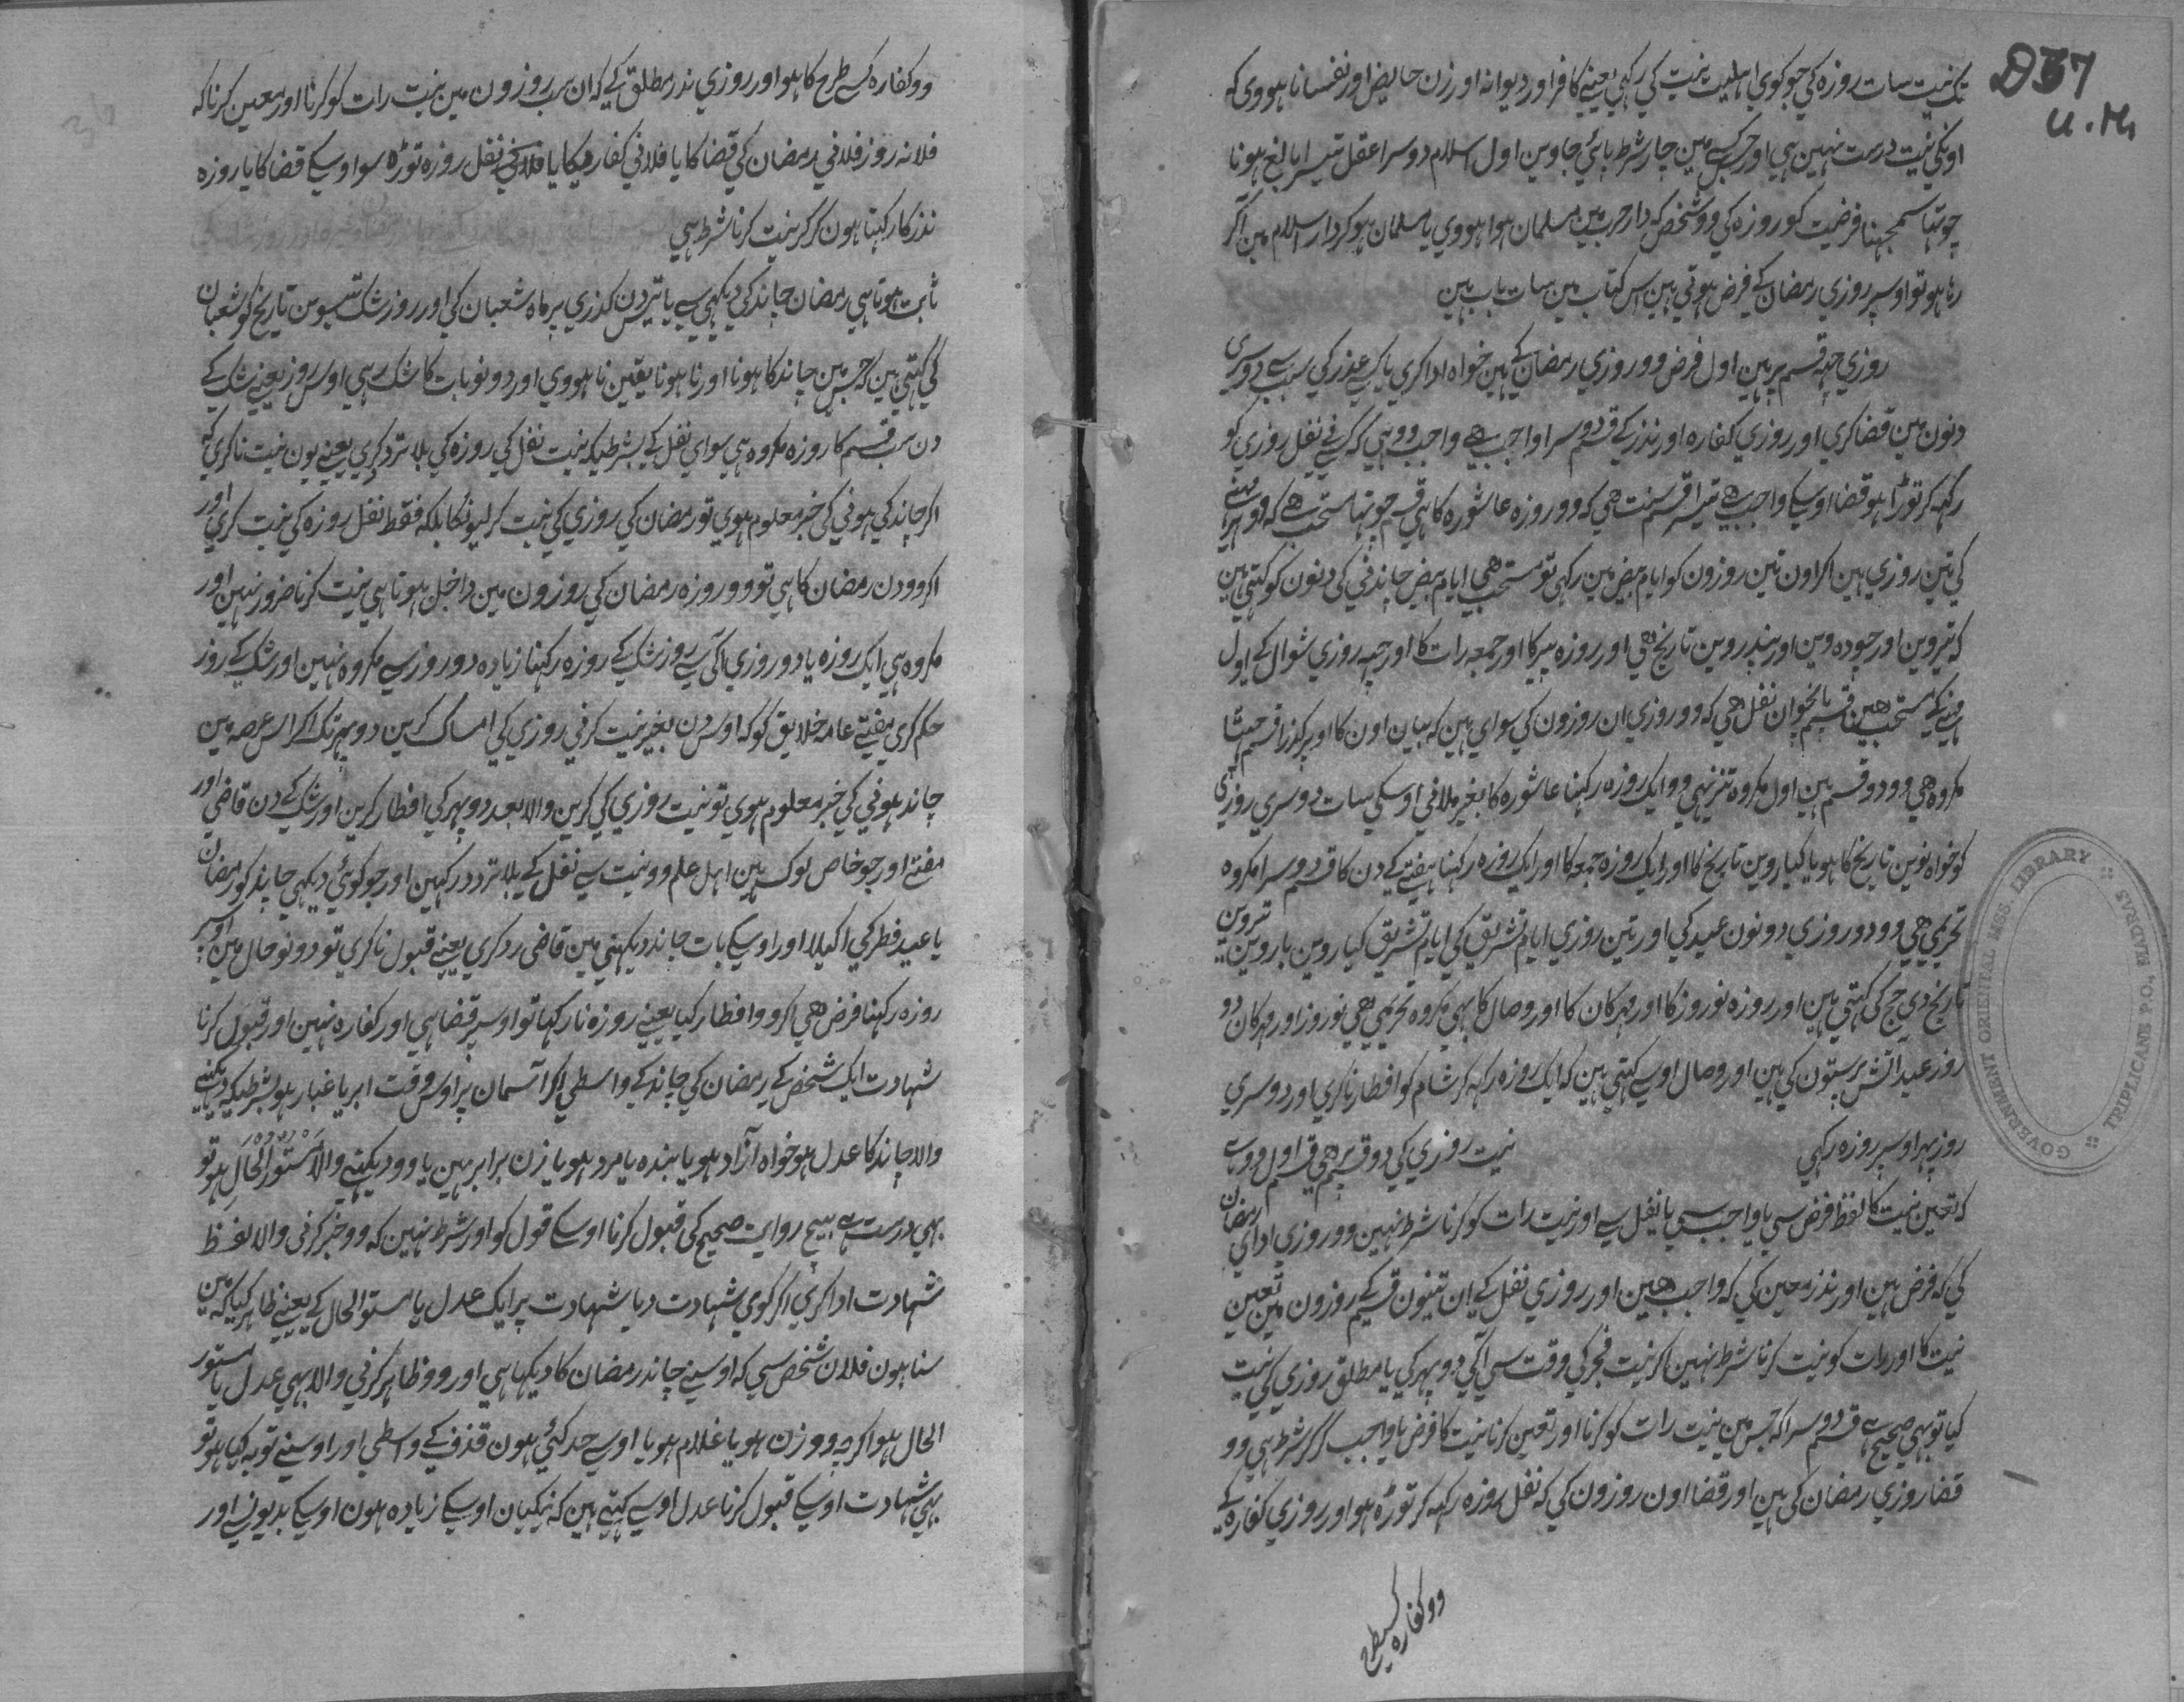 تک نیت سات روزہ کی جو کوی اہلیت نیت کی رکہی یعنے کافر اور دیوانہ اور زن حایض اور نفسا نا ہووی کہ
اونکی نیت درست نہین ہی اور جس کسے مین چار شرط پائی جاوین اول اسلام دوسرا عقل تیسرا بالغ ہونا
چوتہا سمجہنا فرضیت کو روزہ کی وو شخص کہ دار حرب مین مسلمان ہوا ہووی یا مسلمان ہو کر دار اسلام مین آکر
رہا ہو تو اوسپر روزی رمضان کے فرض ہوتی ہین اس کتاب مین سات باب ہین
روزی چہہ قسم پر ہین اول فرض وو روزی رمضان کے ہین خواہ ادا کری یا کسے عذر کی سبب سے دوسری
دنون مین قضا کری اور روزی کفارہ اور نذر کے قسم دوسرا واجب ہے واجب وو ہی کہ کسے نے نفل روزی کو
رکہہ کر توڑا ہو قضا اوسکے واجب ہے تیسرا قسم سنت ہی کہ وو روزہ عاشورہ کا ہی قسم چوتہا مستحب ہے کہ وو ہر مہینے
کی تین روزی ہین اکر اون تین روزون کو ایام بیض مین رکہی تو مستحب ہی ایام بیض چاندنی کی دنون کو کہتی ہین
کہ تیروین اور چودہوین اور پندروین تاریخ ہی اور روزہ پیر کا اور جمعہ رات کا اور چہہ روزی شوال کے اول
مہینے کے مستحب ہین قسم پانچوان نفل ہی کہ وو روزی ان روزون کی سوای ہین کہ بیان اون کا اوپر کذرا قسم چہٹا
مکروہ ہی وو دو قسم ہین اول مکروہ تنزیہی وو ایک روزہ رکہنا عاشورہ کا بغیر ملانی اوسکی سات دوسری روزی
کو خواہ نوین تاریخ کا ہو یا کیاروین تاریخ کا اور ایک روزہ جمعہ کا اور ایک روزہ رکہنا ہفتے کے دن کا قسم دوسرا مکروہ
تحریمی ہی وو دو روزی دونون عید کی اور تین روزی ایام تشریق کی ایام تشریق کیاروین باروین تیروین
تاریخ ذی حج کی کہتی ہین اور روزہ نوروز کا اور مہرکان کا اور وصال کا بہی مکروہ تحریمی ہی نوروز اور مہرکان دو
روز عید آتش پرستون کی ہین اور وصال اوسے کہتی ہین کہ ایک روزہ رکہہ کر شام کو افطار نا کری اور دوسری
روز بہر اوسپر روزہ رکہی نیت روزی کی دو قسم پر ہی قسم اول وو ہے
کہ تعین نیت کا لفظ فرض سی یا واجب سی یا نفل سے اور نیت رات کو کرنا شرط نہین وو روزی ادای رمضان
کی کہ فرض ہین اور نذر معین کی کہ واجب ہین اور روزی نفل کے ان تینون قسم کے روزون مین تعین
نیت کا اور رات کو نیت کرنا شرط نہین اکر نیت فجر کی وقت سی آکی دوپہر کی یا مطلق روزی کی نیت
کیا تو بہی صحیح ہے قسم دوسرا کہ جس مین نیت رات کو کرنا اور تعین کرنا نیت کا فرض یا واجب کرکر شرط ہی وو
قضا روزی رمضان کی ہین اور قضا اون روزون کی کہ نفل روزہ رکہہ کر توڑہ ہو اور روزی کفارہ کے
وو کفارہ کسے طرح
وو کفارہ کسے طرح کا ہو اور روزی نذر مطلق کے کہ ان سب روزون مین نیت رات کو کرنا اور معین کرنا کہ
فلانہ روز فلانی رمضان کی قضا کا یا فلانی کفاریکا یا فلانی نفل روزہ توڑہ سو اوسکے قضا کا یا روزہ
نذر کا رکہتا ہون کرکر نیت کرنا شرط ہی
ثابت ہوتا ہی رمضان چاند کی دیکہی سے یا تیس دن کذری پر ماہ شعبان کی اور روز شک تیسوین تاریخ کو شعبان
کی کہتی ہین کہ جس مین چاند کا ہونا اور نا ہونا یقین نا ہووی اور دونو بات کا شک رہی اوس روز یعنے شک کے
دن سب قسم کا روزہ مکروہ ہی سوای نفل کے بشرطیکہ نیت نفل کی روزہ کی بلا تردد کری یعنے یون نیت نا کری کہ
اکر چاند کی ہونی کی خبر معلوم ہوی تو رمضان کی روزی کی نیت کر لیونکا بلکہ فقط نفل روزہ کی نیت کری اور
اکر وو دن رمضان کا ہی تو وو روزہ رمضان کی روزون مین داخل ہوتا ہی نیت کرنا ضرور نہین اور
مکروہ ہی ایک روزہ یا دو روزی آکی سے روز شک کے روزہ رکہنا زیادہ دو روز سے مکروہ نہین اور شک کے روز
حکم کری مفتے عامہ خلایق کو کہ اوس دن بغیر نیت کرنی روزی کی امساک کرین دوپہر تک اکر اس عرصہ مین
چاند ہونی کی خبر معلوم ہوی تو نیت روزی کی کرین والا بعد دوپہر کی افطار کرین اور شک کے دن قاضی اور
مفتے اور جو خاص لوک ہین اہل علم وو نیت سے نفل کے بلا تردد رکہین اور جو کوئی دیکہی چاند کو رمضان
یا عید فطر کی اکیلا اور اوسکے بات چاند دیکہنی مین قاضی رد کری یعنے قبول نا کری تو دونو حال مین اوسپر
روزہ رکہنا فرض ہی اکر وو افطار کیا یعنے روزہ نا رکہا تو اوسپر قضا ہی اور کفارہ نہین اور قبول کرنا
شہادت ایک شخص کے رمضان کی چاند کے واسطی اکر آسمان پر اوس وقت ابر یا غبار ہو بشرطیکہ دیکہنے
والا چاند کا عدل ہو خواہ آزاد ہو یا بندہ یا مرد ہو یا زن برابر ہین یا وو دیکہنے والا مَسْتُورُ الْحَال ہو تو
بہی درست ہے بیچ روایت صحیح کی قبول کرنا اوسکے قول کو اور شرط نہین کہ وو خبر کرنی والا لفظ
شہادت ادا کری اکر کوی شہادت دیا شہادت پر ایک عدل یا مستور الحال کے یعنے ظاہر کیا کہ مین
سنا ہون فلان شخص سی کہ اوسنے چاند رمضان کا دیکہا ہی اور وو ظاہر کرنی والا بہی عدل یا مستور
الحال ہو اکرچہ وو زن ہو یا غلام ہو یا اوسے حد کئی ہون قذف کے واسطی اور اوسنے توبہ کیا ہو تو
بہی شہادت اوسکے قبول کرنا عدل اوسے کہتے ہین کہ نیکیان اوسکے زیادہ ہون اوسکے بدیون سے اور
D37
U.M.
GOVERNMENT ORIENTAL MSS. LIBRARY
TRIPLICANE P.O., MADRAS
36